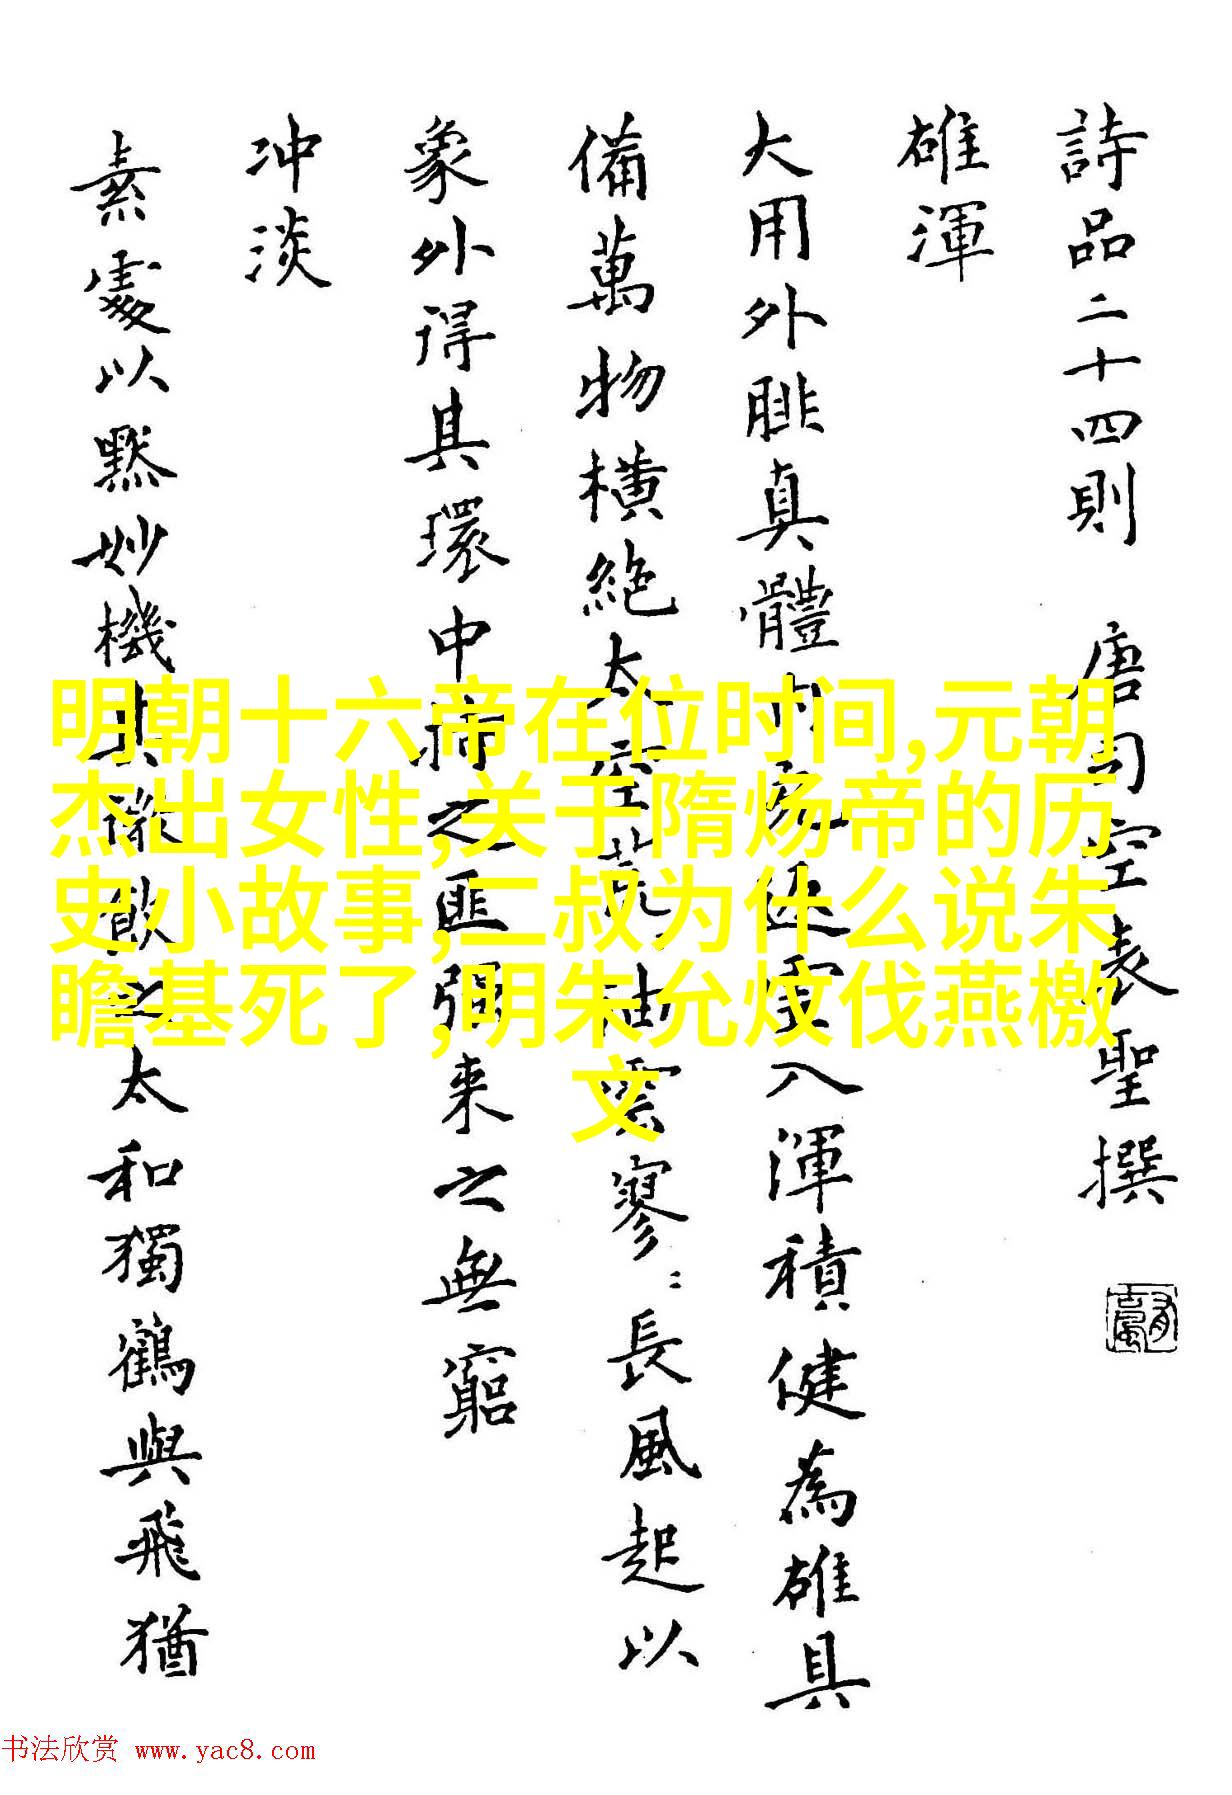 詩品二十四則 唐司空表聖撰
雄渾
大用外腓真體返虛入渾積健為雄具
備萬物橫絶太空荒油雲寥〻長風起以
象外得其環中持之匪强来之無窮
冲淡
素處以黙妙機其微飲之太和獨鶴與飛猶
明朝十六帝在位时间,元朝
杰出女性,关于隋炀帝的历
史小故事,二叔为什么说朱
瞻基死了,明朱允炆伐燕檄
文
书法欣赏 www.yac8.com